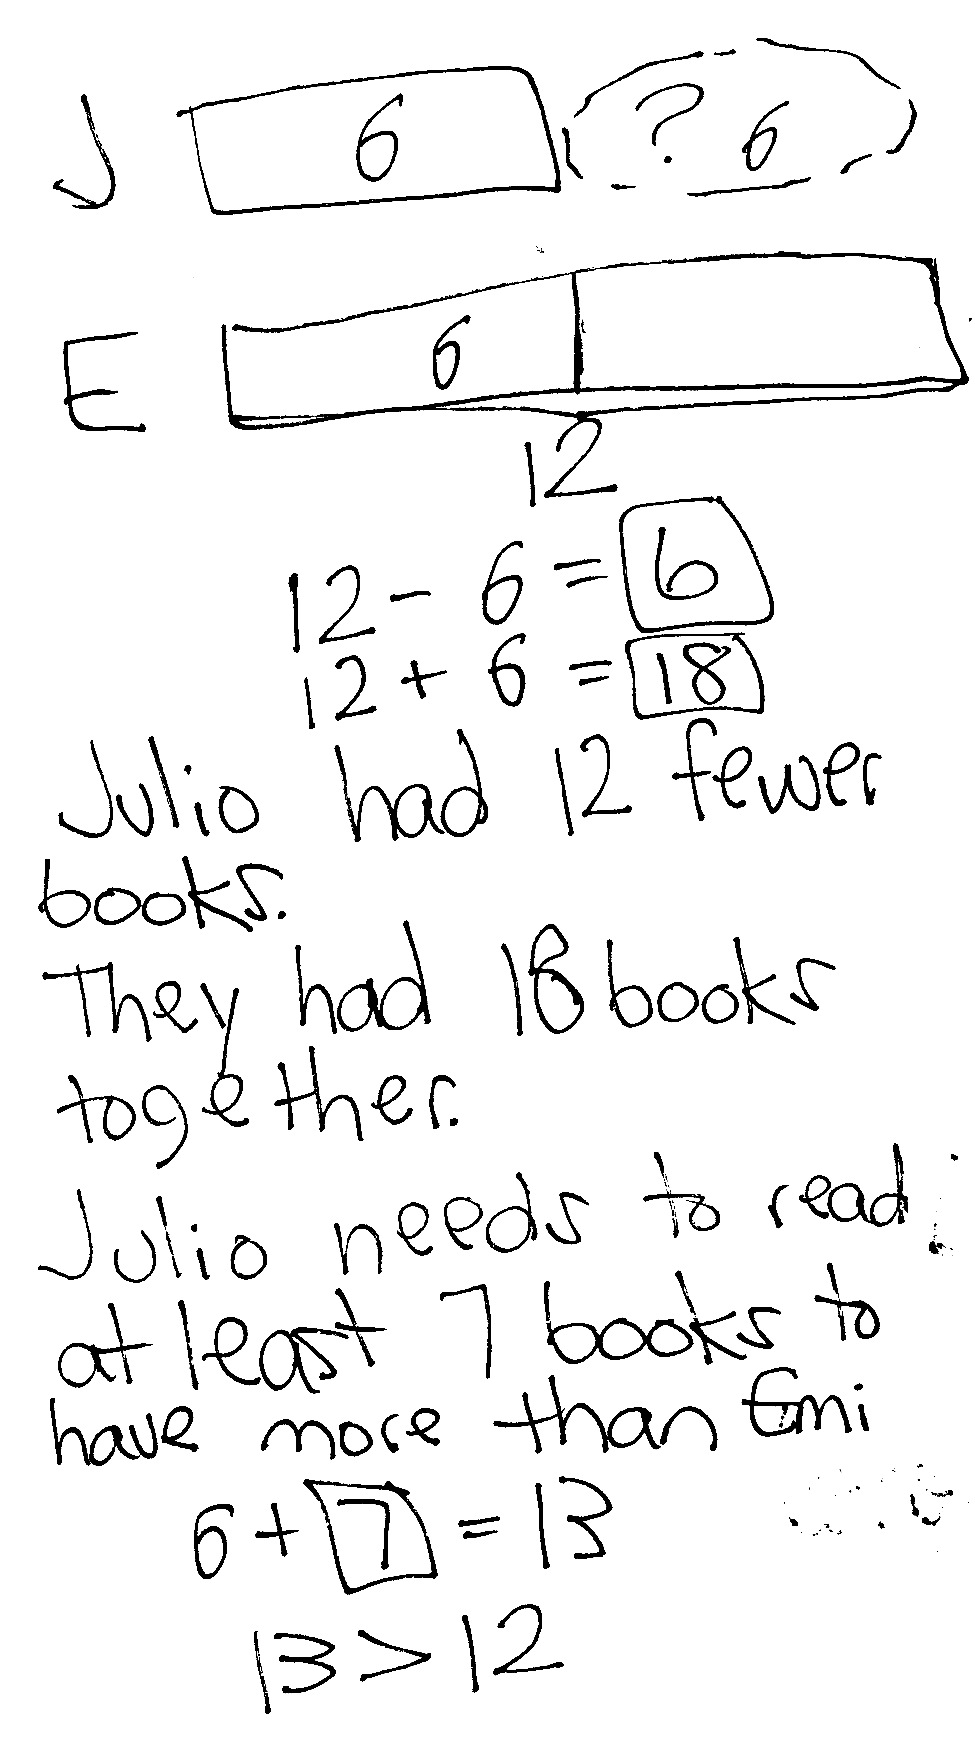 J 6 ? 6
E 6
12
12 - 6 = 6
12 + 6 = 18
Julio had 12 fewer
books.
They had 18 books
together.
Julio needs to read
at least 7 books to
have more than Emi
6 + 7 = 13
13 > 12